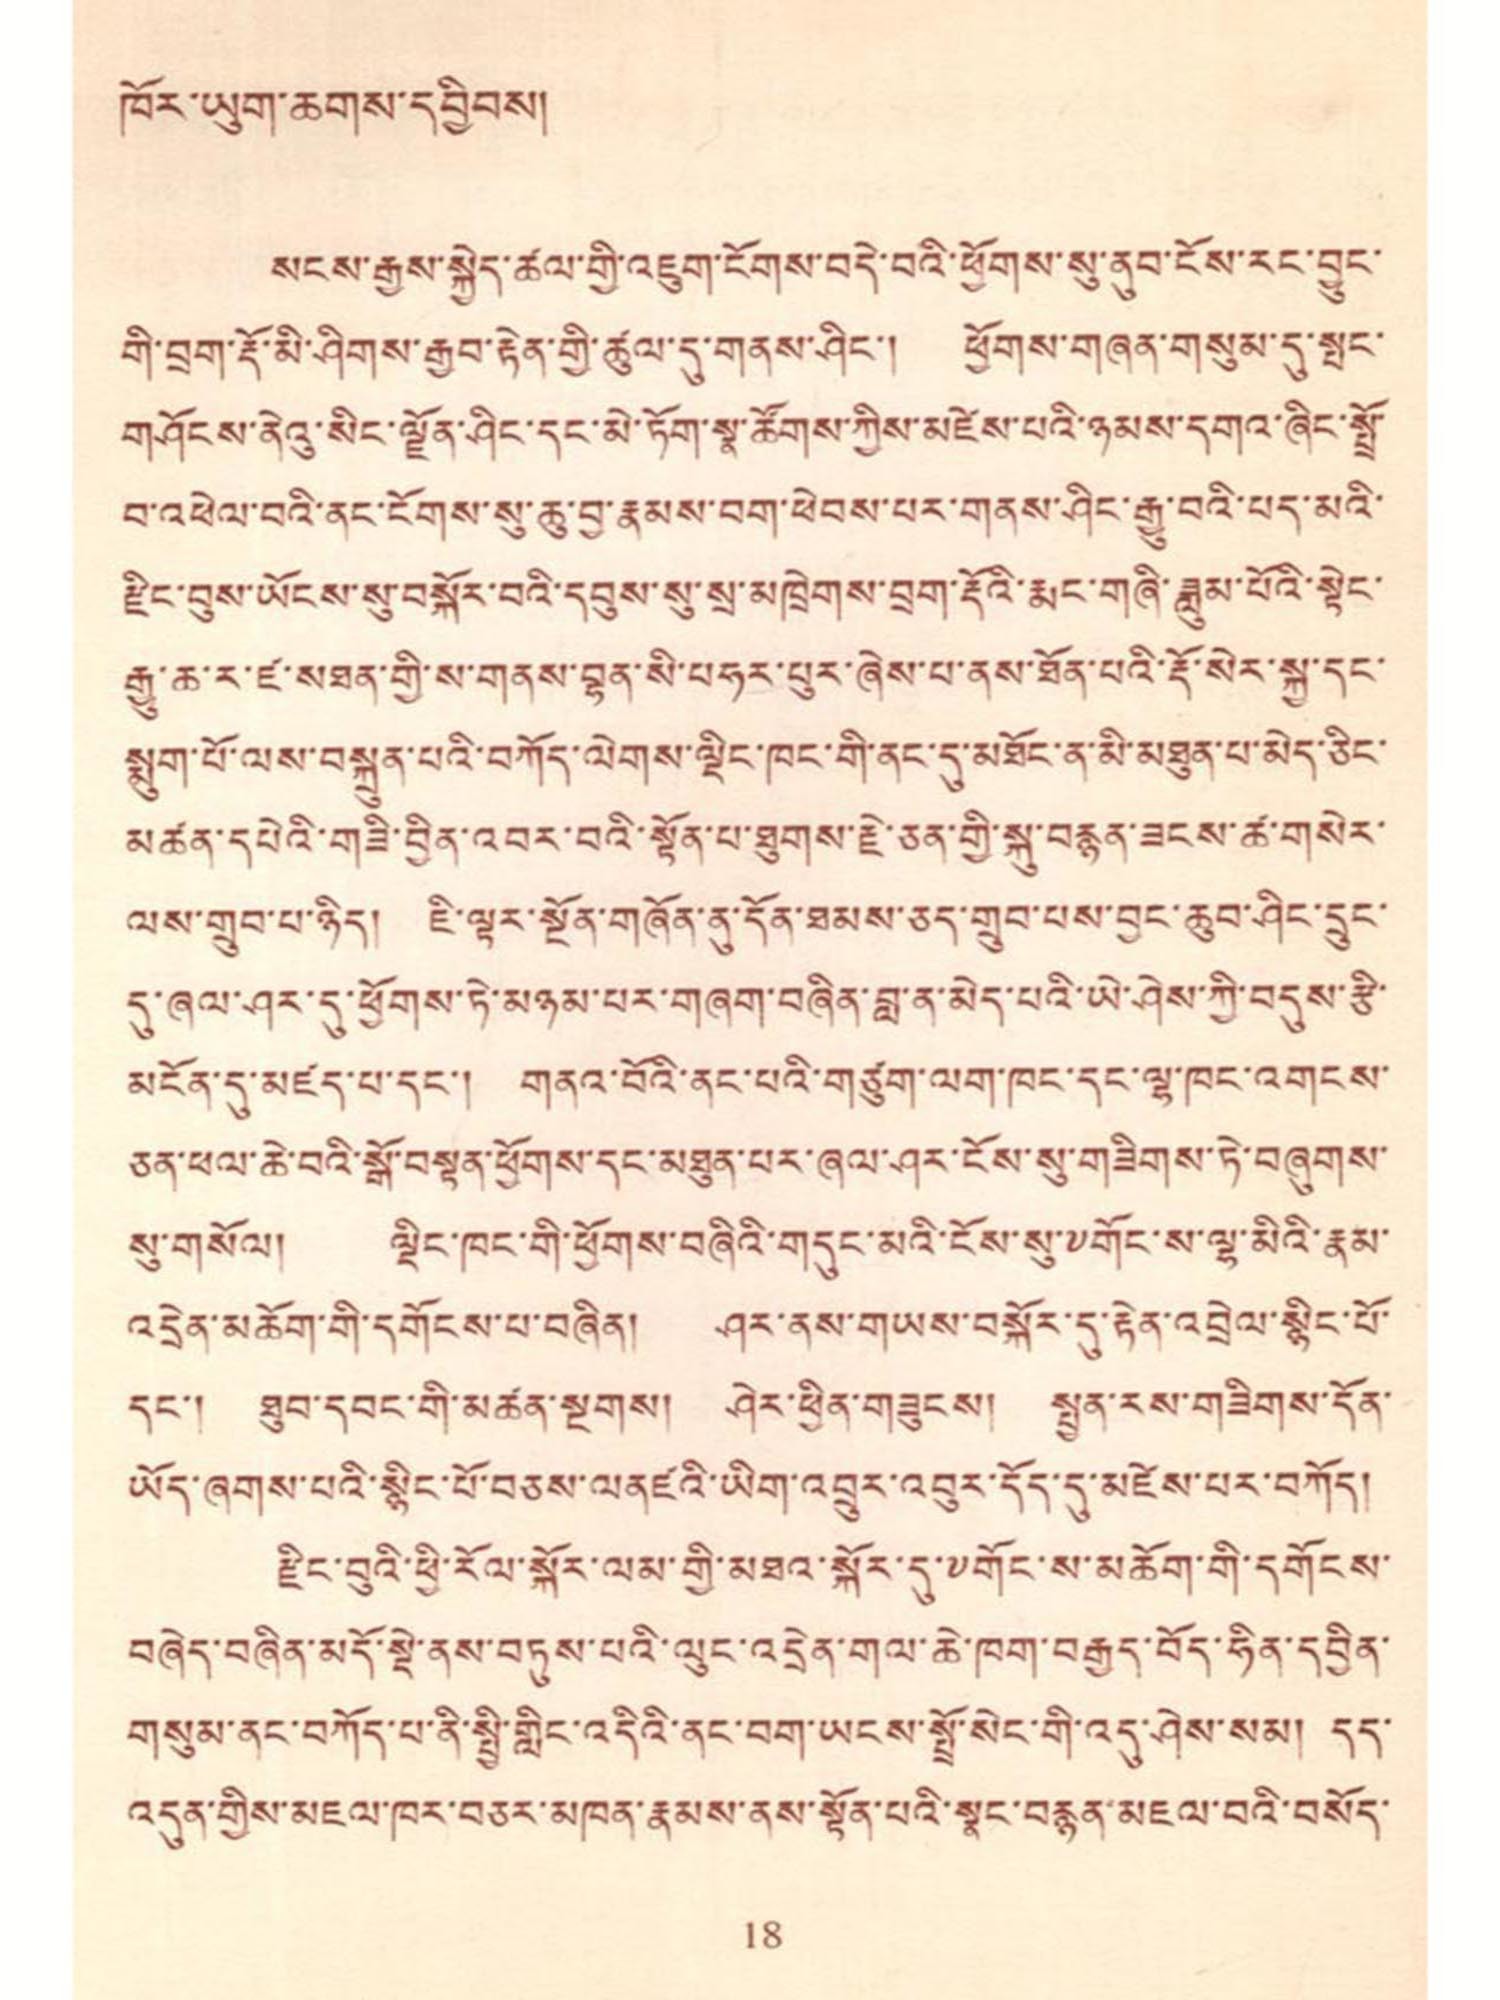 ཁོར་ཡུག་ཆགས་དབྱིབས།
སངས་རྒྱས་སྐྱེད་ཚལ་གྱི་འཇུག་ངོགས་བདེ་བའི་ཕྱོགས་སུ་ནུབ་ངོས་རང་བྱུང་
གི་བྲག་རྡོ་མི་ཤིགས་རྒྱབ་རྟེན་གྱི་ཚུལ་དུ་གནས་ཤིང་། ཕྱོགས་གཞན་གསུམ་དུ་སྤང་
གཤོངས་ནེའུ་སིང་ལྗོན་ཤིང་དང་མེ་ཏོག་སྣ་ཚོགས་ཀྱིས་མཛེས་པའི་ཉམས་དགའ་ཞིང་སྤྲོ་
བ་འཕེལ་བའི་ནང་ངོགས་སུ་ཆུ་བྱ་རྣམས་བག་ཕེབས་པར་གནས་ཤིང་རྒྱུ་བའི་པད་མའི་
རྫིང་བུས་ཡོངས་སུ་བསྐོར་བའི་དབུས་སུ་སྲ་མཁྲེགས་བྲག་རྡོའི་རྨང་གཞི་ཟླུམ་པོའི་སྟེང་
རྒྱུ་ཆ་ར་ཛ་སཐན་གྱི་ས་གནས་བྷན་སི་པཧར་པུར་ཞེས་པ་ནས་ཐོན་པའི་རྡོ་སེར་སྐྱ་དང་
སྨུག་པོ་ལས་བསྐྲུན་པའི་བཀོད་ལེགས་ལྡིང་ཁང་གི་ནང་དུ་མཐོང་ན་མི་མཐུན་པ་མེད་ཅིང་
མཚན་དཔེའི་གཟི་བྱིན་འབར་བའི་སྟོན་པ་ཐུགས་རྗེ་ཅན་གྱི་སྐུ་བརྙན་ཟངས་ཚ་གསེར་
ལས་གྲུབ་པ་ཉིད། ཇི་ལྟར་སྔོན་གཞོན་ནུ་དོན་ཐམས་ཅད་གྲུབ་པས་བྱང་ཆུབ་ཤིང་དྲུང་
དུ་ཞལ་ཤར་དུ་ཕྱོགས་ཏེ་མཉམ་པར་གཞག་བཞིན་བླ་ན་མེད་པའི་ཡེ་ཤེས་ཀྱི་བདུས་རྩི་
མངོན་དུ་མཛད་པ་དང་། གནའ་བོའི་ནང་པའི་གཙུག་ལག་ཁང་དང་ལྷ་ཁང་འགངས་
ཅན་ཕལ་ཆེ་བའི་སྒོ་བསྟན་ཕྱོགས་དང་མཐུན་པར་ཞལ་ཤར་ངོས་སུ་གཟིགས་ཏེ་བཞུགས་
སུ་གསོལ། ལྡིང་ཁང་གི་ཕྱོགས་བཞིའི་གདུང་མའི་ངོས་སུ་༧གོང་ས་ལྷ་མིའི་རྣམ་
འདྲེན་མཆོག་གི་དགོངས་པ་བཞིན། ཤར་ནས་གཡས་བསྐོར་དུ་རྟེན་འབྲེལ་སྙིང་པོ་
དང་། ཐུབ་དབང་གི་མཚན་སྔགས། ཤེར་ཕྱིན་གཟུངས། སྤྱན་རས་གཟིགས་དོན་
ཡོད་ཞགས་པའི་སྙིང་པོ་བཅས་ལནཛའི་ཡིག་འབྲུར་འབུར་དོད་དུ་མཛེས་པར་བཀོད།
རྫིང་བུའི་ཕྱི་རོལ་སྐོར་ལམ་གྱི་མཐའ་སྐོར་དུ་༧གོང་ས་མཆོག་གི་དགོངས་
བཞེད་བཞིན་མདོ་སྡེ་ནས་བཏུས་པའི་ལུང་འདྲེན་གལ་ཆེ་ཁག་བརྒྱད་བོད་ཧིན་དབྱིན་
གསུམ་ནང་བཀོད་པ་ནི་སྤྱི་གླིང་འདིའི་ནང་བག་ཡངས་སྤྲོ་སེང་གི་འདུ་ཤེས་སམ། དད་
འདུན་གྱིས་མཇལ་ཁར་བཅར་མཁན་རྣམས་ནས་སྟོན་པའི་སྣང་བརྙན་མཇལ་བའི་བསོད་
18